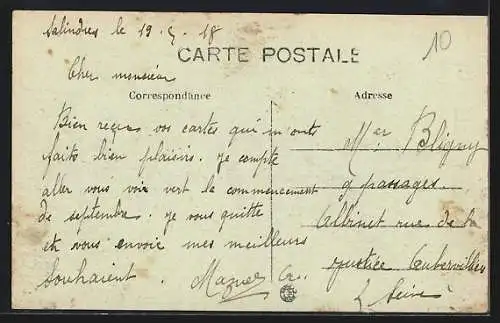 Salindres le 19. 5. 18
10
CARTE POSTALE
Cher monsieur
Correspondance
Adresse
Bien reçus vos cartes qui m'onts
faits bien plaisirs. je compte
aller vous voir vert le commencement
de septembre. je vous quitte
et vous envoie mes meilleurs
Souhaient.
Mer Bligny
9 passages
Albinet rue de la
justice Aubervilliers
Seine